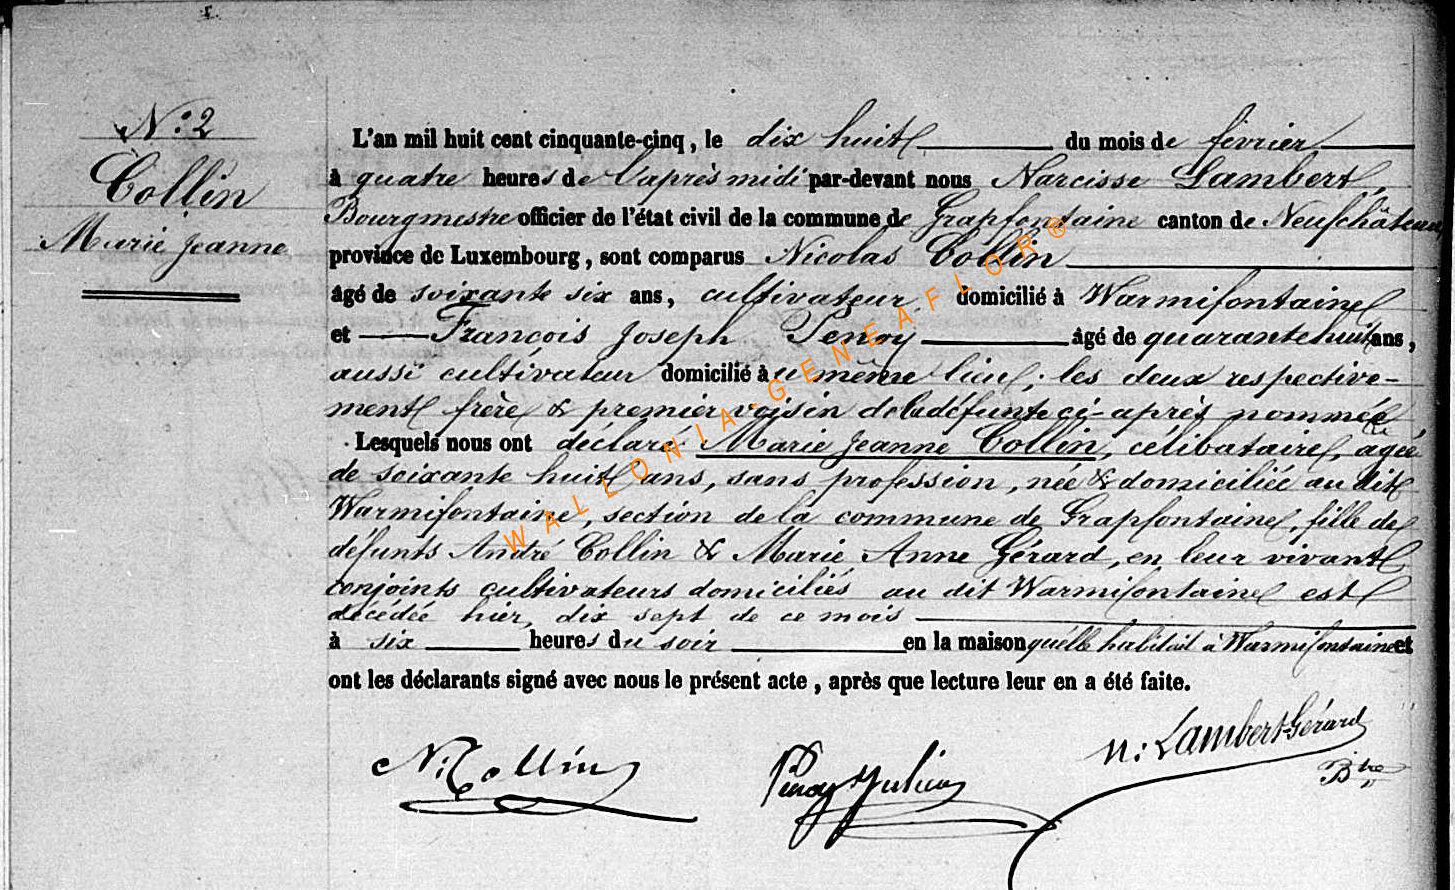 N.º 2
Collin
Marie Jeanne
L'an mil huit cent cinquante-cinq, le dix huit du mois de février
à quatre heures de l'après midi par-devant nous Narcisse Lambert,
Bourgmestre officier de l'état civil de la commune de Grapfontaine canton de Neufchâteau
province de Luxembourg, sont comparus Nicolas Collin
âgé de soixante six ans, cultivateur domicilié à Warmifontaine
et François Joseph Penoy âgé de quarante huit ans,
aussi cultivateur domicilié au même lieu; les deux respective-
ment frère & premier voisin de la défunte ci-après nommée
Lesquels nous ont déclaré Marie Jeanne Collin, célibataire, agée
de soixante huit ans, sans profession, née & domiciliée au dit
Warmifontaine, section de la commune de Grapfontaine, fille de
défunts André Collin & Marie Anne Gérard, en leur vivant
conjoints cultivateurs domiciliés au dit Warmifontaine est
décédée hier, dix sept de ce mois
à six heures du soir en la maison qu'elle habitait à Warmifontaine et
ont les déclarants signé avec nous le présent acte, après que lecture leur en a été faite.
N: Collin
Penoy Julien
N: Lambert-Gérard
Btre
WALLONIA-GENEAFLOR®